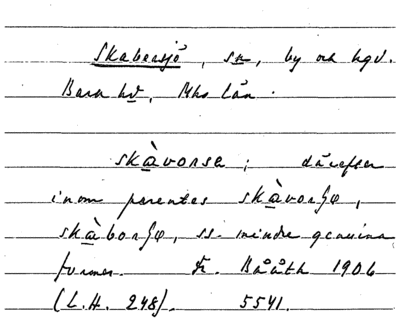 Skabersjö, sn, by och hgd.
Bara hd, Mhs län.
skàvorsø; därefter
inom parentes skàvorʃø,
skàborʃø, ss. mindre genuina
former. Fr. Bååth 1906
(L.H. 248). 5541.